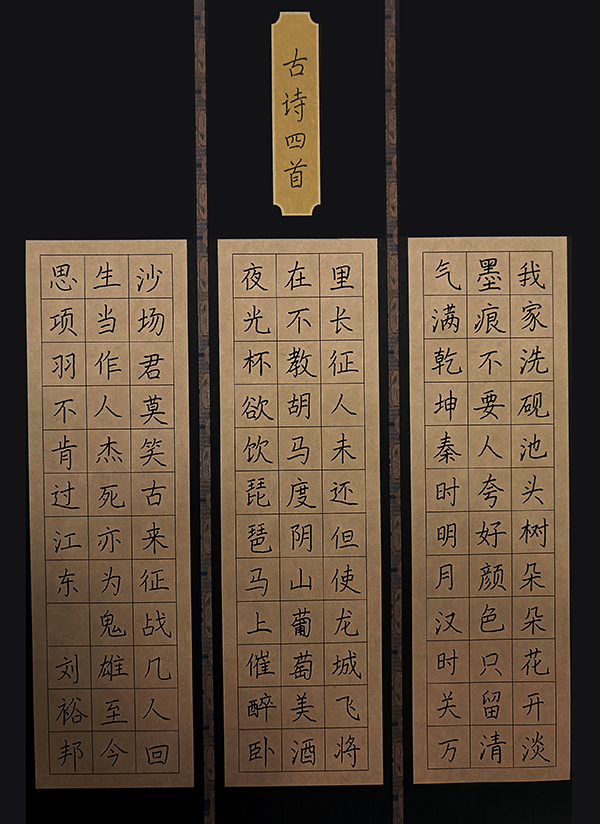 古诗四首
我家洗砚池头树朵朵花开淡
墨痕不要人夸好颜色只留清
气满乾坤秦时明月汉时关万
里长征人未还但使龙城飞将
在不教胡马度阴山葡萄美酒
夜光杯欲饮琵琶马上催醉卧
沙场君莫笑古来征战几人回
生当作人杰死亦为鬼雄至今
思项羽不肯过江东 刘裕邦